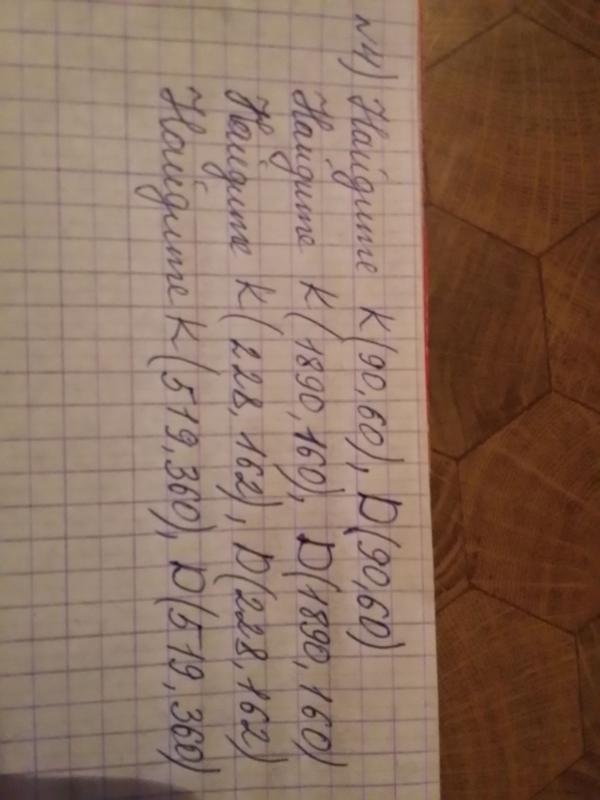 №4) Найдите K(90,60), D(90,60)
Найдите K(1890,160), D(1890,160)
Найдите K(228,162), D(228,162)
Найдите K(519,360), D(519,360)